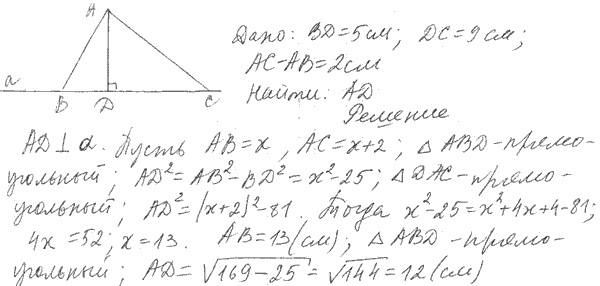 A
a
B D C
Дано: BD=5см; DC=9см;
AC-AB=2см
Найти: AD
Решение
AD⊥α. Пусть AB=x, AC=x+2; △ABD-прямо-
угольный; AD²=AB²-BD²=x²-25; △DAC-прямо-
угольный; AD²=(x+2)²-81. Тогда x²-25=x²+4x+4-81;
4x=52; x=13. AB=13(см); △ABD-прямо-
угольный; AD=√169-25=√144=12(см)